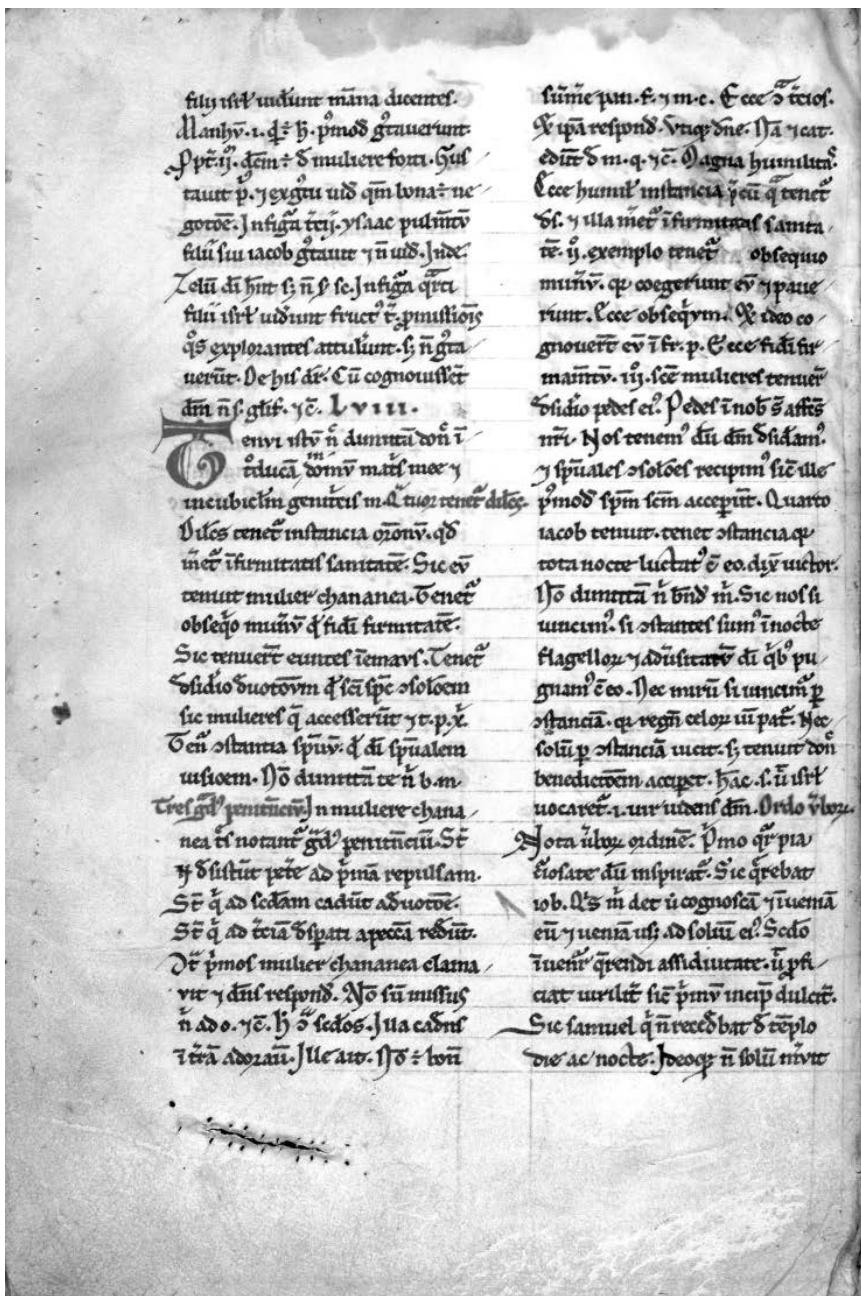 filii isrl' uid'unt māna dicentes.
Manhv. i. qͥ ÷ h̄. p̓mod gͣtauerunt.
Ppt̄. ij. dc̄m ÷ đ muliere forti. Gus
tauit p̓. ⁊ ex gͣtu uid qm̄ bona ÷ ne
gotōe. In figͣa t̓cij. ysaac pulm̄tv
filii sui iacob gͣtauit ⁊ n̄ uid. Inde.
Zelū đi hn̄t sꝫ n̄ s̄ sc̄. In figͣa qͣrti
filii isrl' uid'unt fruct᷒ t̓. ꝓmissiōis
qͦs explorantes attul'unt. sꝫ n̄ gͣta
uer̄ut. De his dr̄. Cū cognouisset̄
dm̄ n̄ s. gl'if. ⁊c̄. LVIII.
Tenvi istv n̄ dimittā don̄ ī
t̓ducā domv matͥs mee ⁊
in cubicl'm genitͥcis m. Qͣtuor tenet᷑ dil'cs.
Dil'cs tenet᷑ instancia or̄onv. qđ
m̄et᷑ īfirmitatis sanitatē. Sic ev
tenuit mulier chananea. Tenet᷑
obseqͥo mun̄v qͥ fidi firmitatē.
Sic tenuert̄ euntes ī emavs. Tenet᷑
đsid'io đuotōvm qͥ sci sp̄c ↄsol'oem
sic mulieres q̄ accesser̄ut ⁊ t. p. x̄.
Ten᷑ ↄstantia sp̄uv. qͥ đi sp̄ualem
uisioem. Nō dimittā te n̄ b. m
Tres gͣd᷒ penitn̄civ. In muliere chana
nea t̓s notant᷑ gͣd᷒ penitn̄ciū. St̄
q̄ đsistūt pet̓e ad p̓mā repulsam.
St̄ q̄ ad sc̄dam cadūt ađuotōe.
St̄ q̄ ad t̓ciā đsp̄ati a peccā redūt.
Ot̄ p̓mos mulier chananea clama
vit ⁊ dn̄s respond'. Nō sū missus
n̄ ad o. ⁊c̄. h̄ ↄ̄ sc̄dos. Illa cadn̄s
ī t̓rā adorau̅. Ille ait. Nō ÷ bon̄
sum̄e pan. f. ⁊ m. c. Ecce ↄͣ t̓cios.
Qꝫ ip̄a respond'. Vtiqꝫ dn̄e. Nā ⁊ cat.
edūt đ m. q. ⁊c̄. Magna humilitā᷒.
Ecce humil' instancia p̓cū qͣ tenet᷑
đs. ⁊ illa m̄et᷑ īfirmitatis sanita
tē. ij. exemplo tenet᷑ obsequio
mun̄v. qꝛ coegerunt ev ⁊ paue
runt. Ecce obseqͥvm. Qꝫ ideo co
gnouer̄t ev ī fr. p. Ecce fidi fir
mam̄tv. iij. sc̄e mulieres tenuer̄
đsid'io pedes ei᷒. Pedes ī nob̄ s̄ affc̄s
nr̄i. Nos tenem᷒ dū dm̄ đsid'am᷒
⁊ sp̄uales ↄsol'oes recipim᷒ sic̄ ille
p̓mod sp̄m sc̄m accep̄ut. Quarto
iacob tenuit. tenet ↄstancia qꝛ
tota nocte luctat᷒ ē eo. dix̄ uictor.
Nō dimittā n̄ bn̄d m̄. Sic nos si
uincim᷒. si ↄstantes sum᷒ ī nocte
flagellor̄ ⁊ adu̓sitatv di qͥb᷒ pu
gnam᷒ c̄ eo. Nec mirū si uincim᷒ ꝑ
ↄstanciā. qꝛ regn̄ celor̄ uī pat᷑. Nec
solū ꝑ ↄstanciā uicit. sꝫ tenuit don̄
benedictōem accip̓et. hac. s. ū isrl'
uocaret᷑. i. uir uidens dm̄. Ordo v̓bor̄.
Nota u̓bor̄ ordinē. P̓mo qr̄ pia
t̓iosate dū inspirat᷑. Sic q̄rebat
iob. Qͥs m̄ det ū cognoscā ⁊ īueniā
eū ⁊ ueniā usqꝫ ad soliū ei᷒. Sc̄do
īuenir̄ q̄rendi assiduitate. ū ꝓfi
ciat uirilit᷑ sic̄ p̓mv incip̄ dulcit᷑.
Sic samuel q̄ n̄ reced'bat đ tēplo
die ac nocte. Ideoqꝫ n̄ solū m̄vit